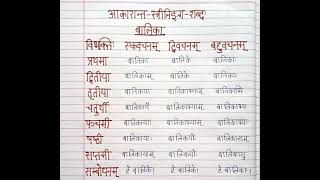 आकारान्त-स्त्रीलिङ्ग-शब्दः
बालिका
विभक्तिः एकवचनम् द्विवचनम् बहुवचनम्
प्रथमा बालिका बालिके बालिकाः
द्वितीया बालिकाम् बालिके बालिकाः
तृतीया बालिकया बालिकाभ्याम् बालिकाभिः
चतुर्थी बालिकायै बालिकाभ्याम् बालिकाभ्यः
पञ्चमी बालिकायाः बालिकाभ्याम् बालिकाभ्यः
षष्ठी बालिकायाः बालिकयोः बालिकानाम्
सप्तमी बालिकायाम् बालिकयोः बालिकासु
सम्बोधनम् हे बालिके! हे बालिके! हे बालिकाः!